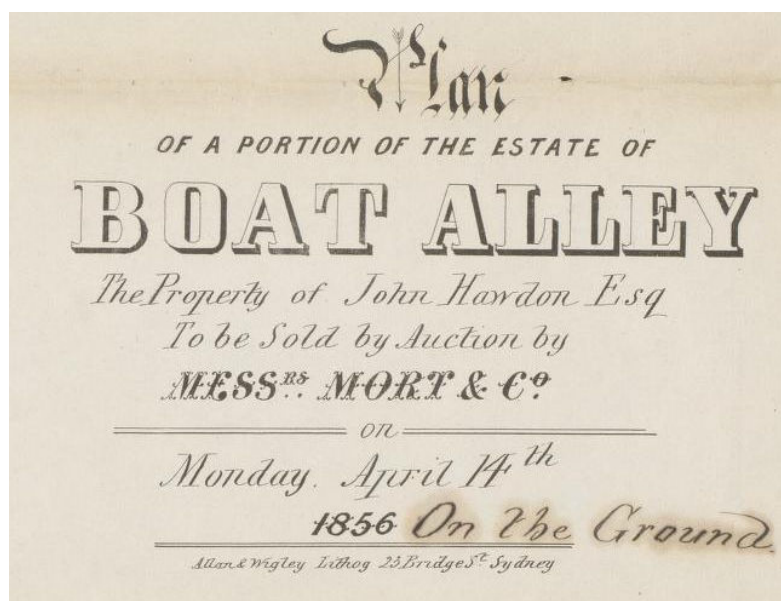 Plan
OF A PORTION OF THE ESTATE OF
BOAT ALLEY
The Property of John Hawdon Esq
To be Sold by Auction by
MESSRS. MORT & Co.
on
Monday. April 14th
1856 On the Ground.
Allan & Wigley Lithog 23, Bridge St. Sydney